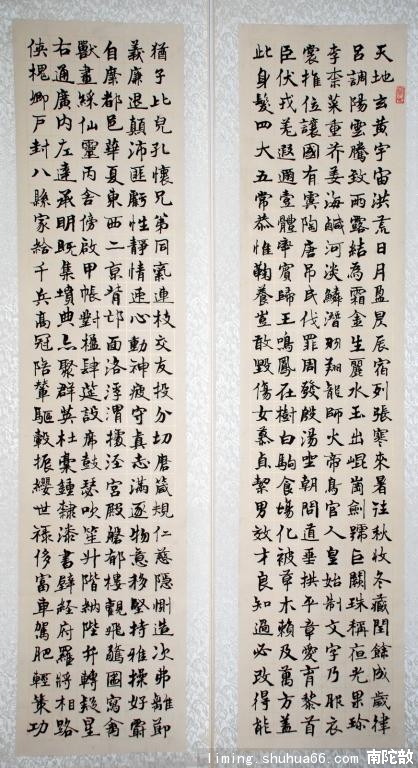 天地玄黃宇宙洪荒日月盈昃辰宿列張寒來暑往秋收冬藏閏餘成歲律
呂調陽雲騰致雨露結為霜金生麗水玉出崐崗劍號巨闕珠稱夜光果珍
李柰菜重芥薑海鹹河淡鱗潛羽翔龍師火帝鳥官人皇始制文字乃服衣
裳推位讓國有虞陶唐吊民伐罪周發殷湯坐朝問道垂拱平章愛育黎首
臣伏戎羌遐邇壹體率賓歸王鳴鳳在樹白駒食場化被草木賴及萬方蓋
此身髮四大五常恭惟鞠養豈敢毀傷女慕貞絜男效才良知過必改得能
猶子比兒孔懷兄弟同氣連枝交友投分切磨箴規仁慈隱惻造次弗離節
義廉退顛沛匪虧性靜情逸心動神疲守真志滿逐物意移堅持雅操好爵
自縻都邑華夏東西二京背邙面洛浮渭據涇宮殿磐郁樓觀飛驚圖寫禽
獸畫綵仙靈丙舍傍啟甲帳對楹肆筵設席鼓瑟吹笙升階納陛弁轉疑星
右通廣內左達承明既集墳典亦聚群英杜稾鍾隸漆書壁經府羅將相路
俠槐卿戶封八縣家給千兵高冠陪輦驅轂振纓世祿侈富車駕肥輕策功
liming.shuhua66.com 南陀歆